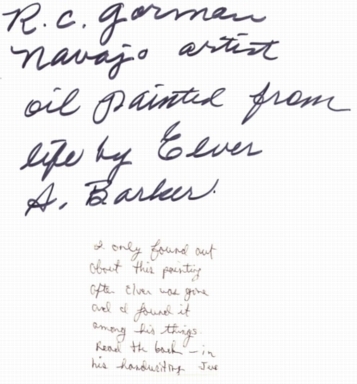 R.C. Gorman
Navajo artist
oil painted from
life by Elver
A. Barker.
I only found out
about this painting
after Elver was gone
and I found it
among his things.
Read the back — in
his handwriting Joe